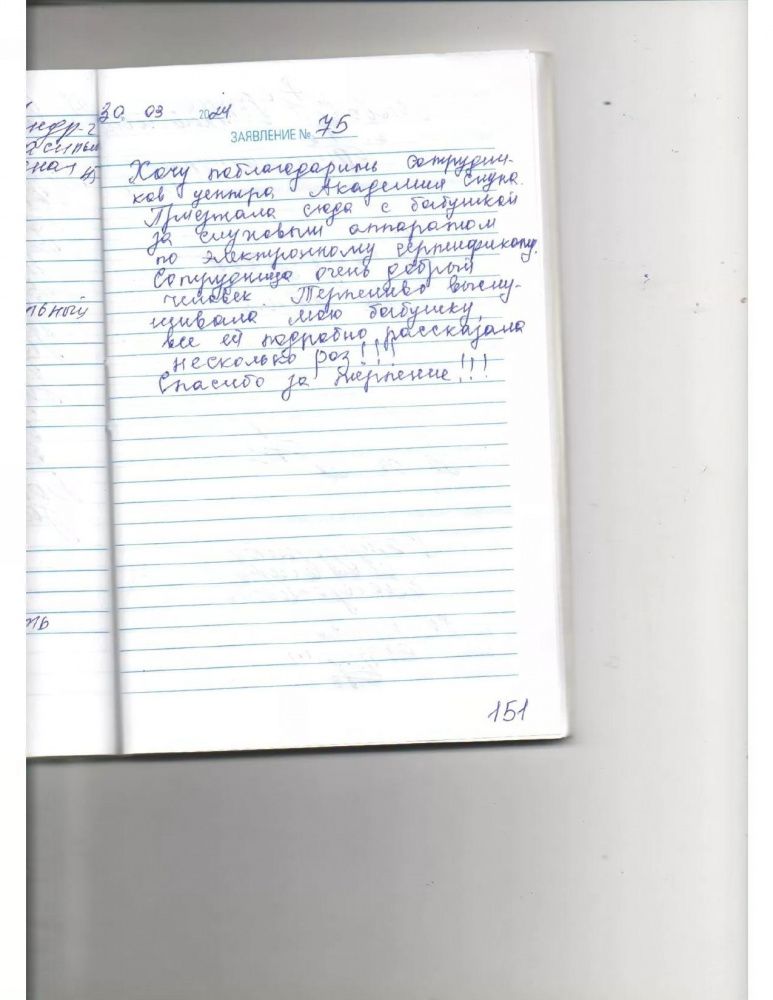 30. 03 2024
ЗАЯВЛЕНИЕ № 75
Хочу поблагодарить сотрудни-
ков центра Академия слуха.
Приезжала сюда с бабушкой
за слуховым аппаратом
по электронному сертификату.
Сотрудница очень добрый
человек. Терпеливо выслу-
шивала мою бабушку,
все ей подробно рассказала
несколько раз!!!
Спасибо за терпение!!!
151